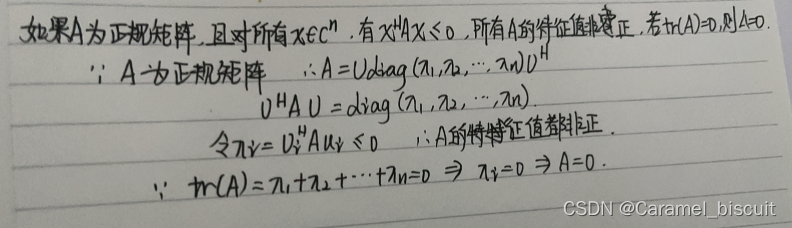 如果A为正规矩阵,且对所有x∈Cⁿ,有xᴴAx≤0,所有A的特征值非正,若tr(A)=0,则A=0.
∵ A为正规矩阵 ∴A=Udiag(λ₁,λ₂,⋯,λn)Uᴴ
UᴴAU=diag(λ₁,λ₂,⋯,λn).
令λi=UiᴴAui≤0 ∴A的特征值都非正.
∵ tr(A)=λ₁+λ₂+⋯+λn=0 ⇒ λi=0 ⇒ A=0.
CSDN @Caramel_biscuit